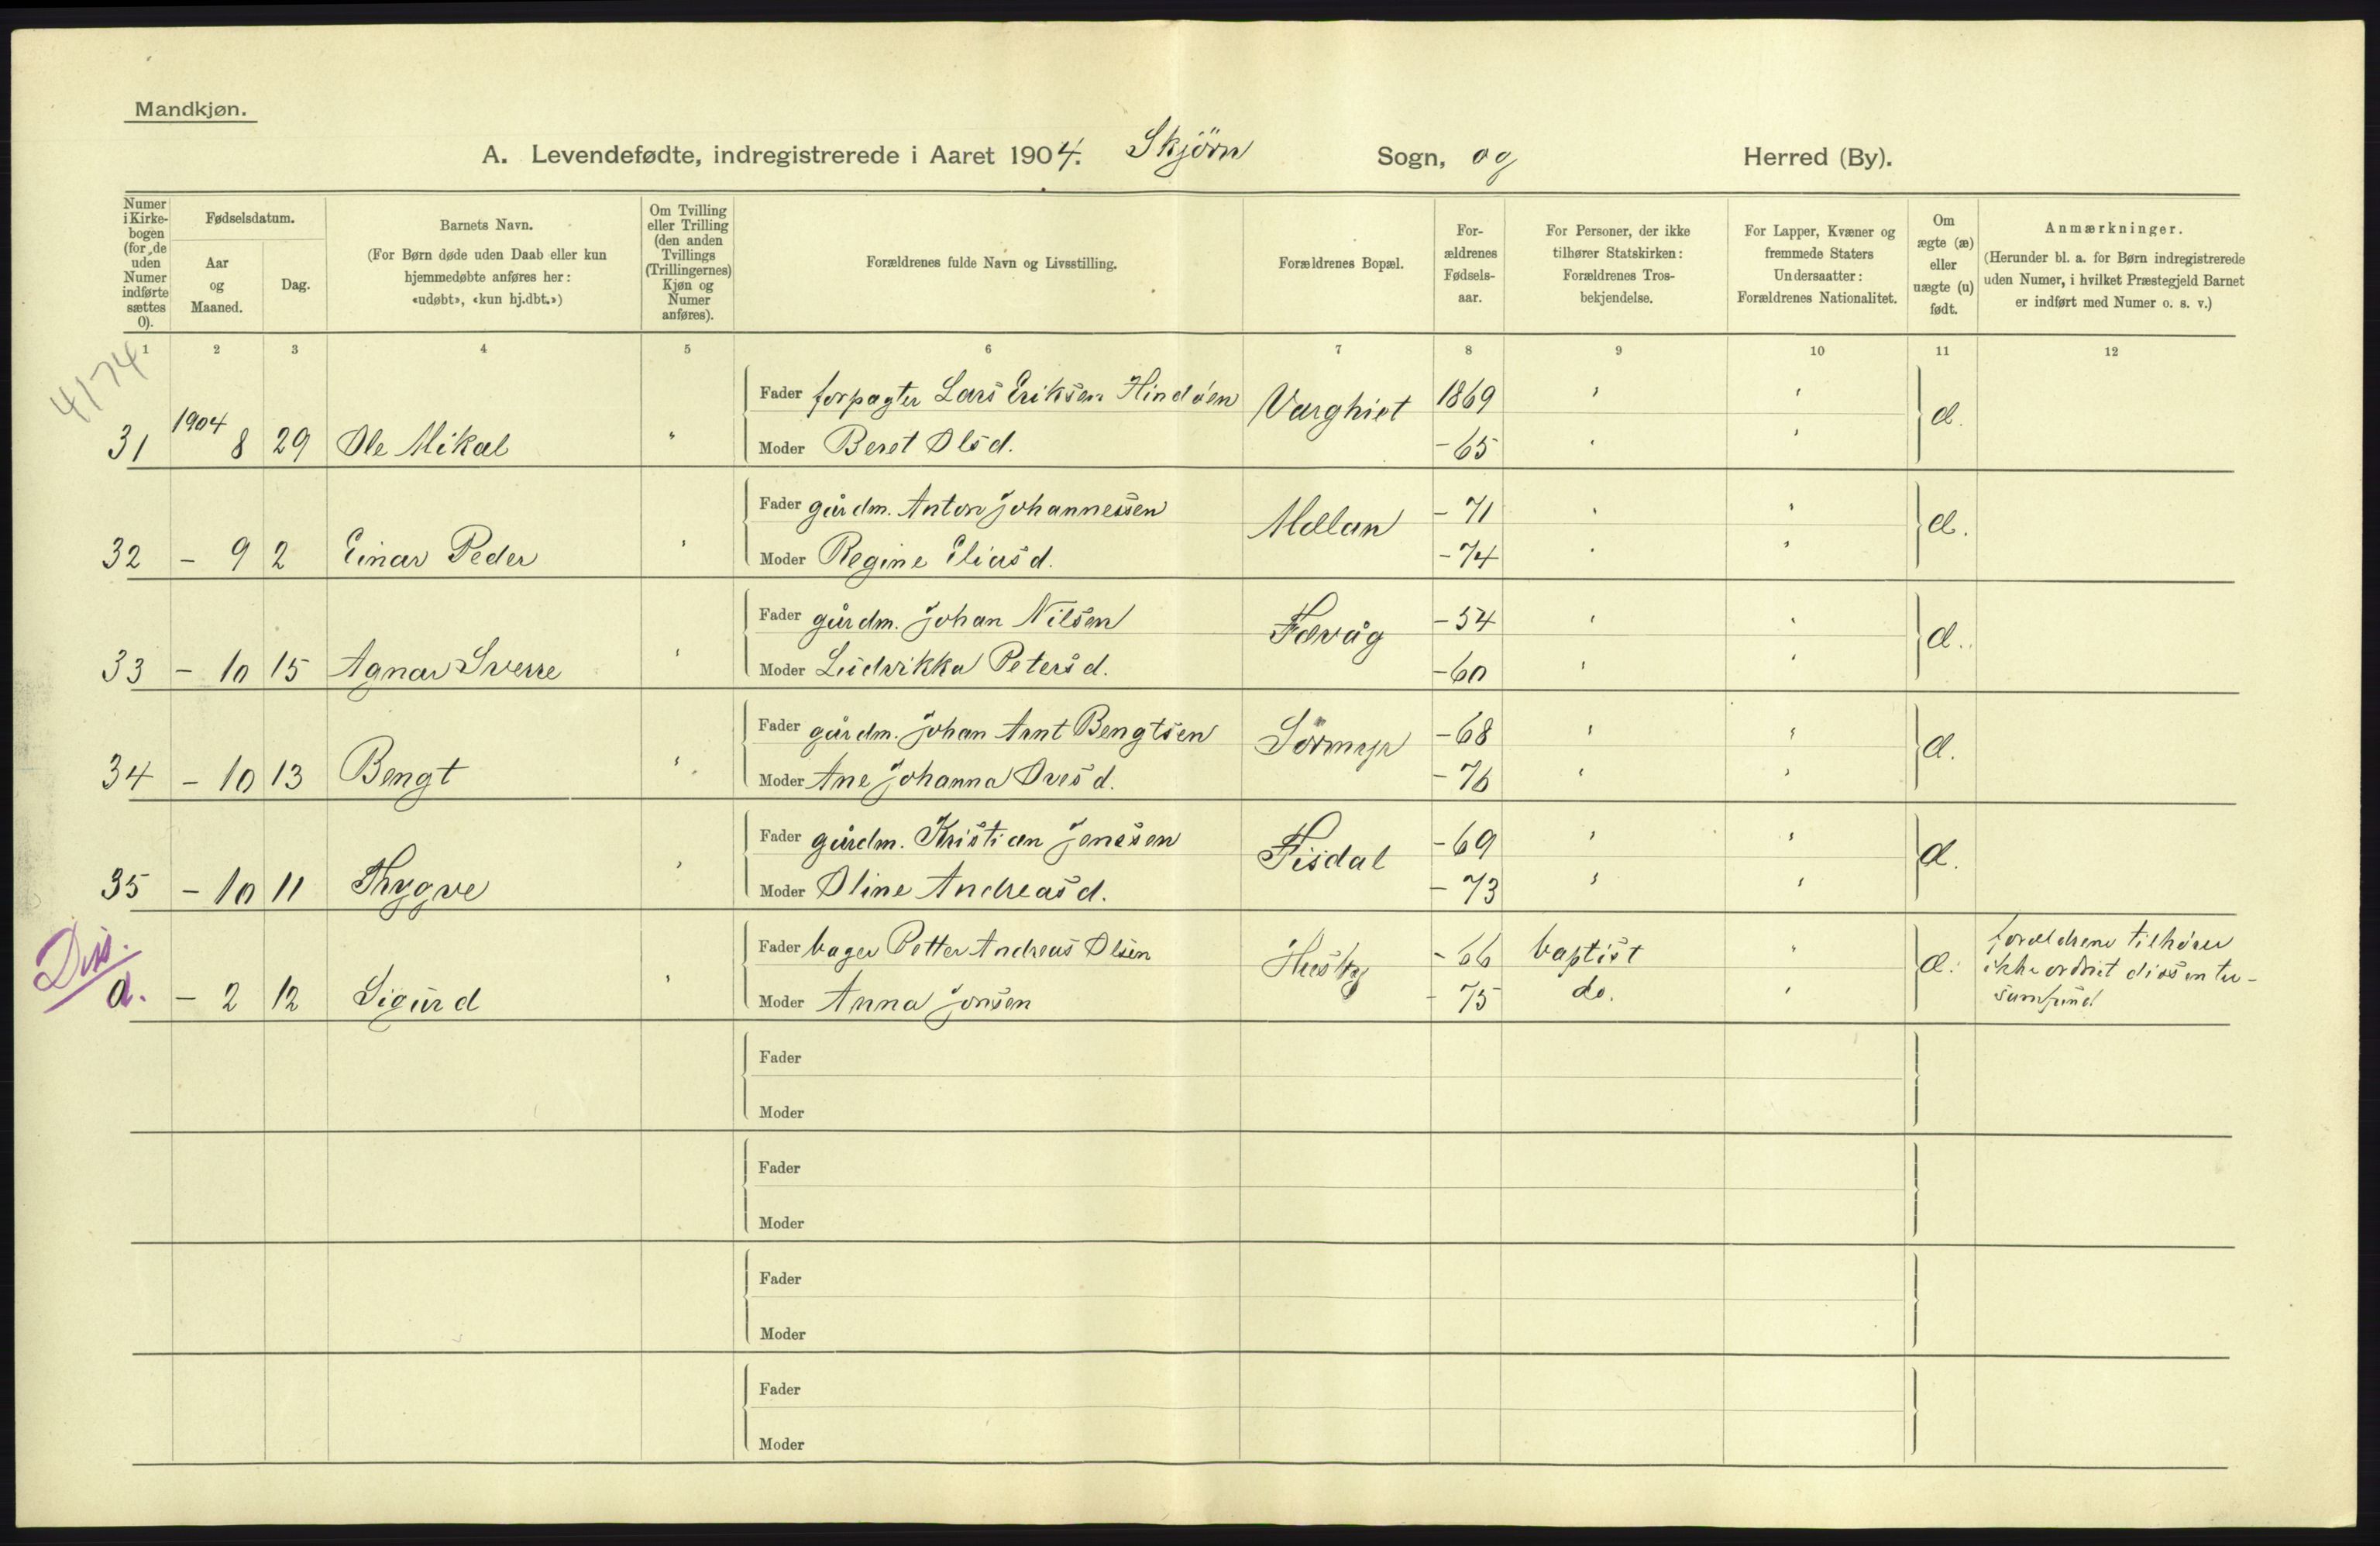 Mandkjøn.
A. Levendefødte, indregistrerede i Aaret 1904. Skjörn Sogn, og Herred (By).
Numer i Kirke-bogen (for de uden Numer indførte sættes 0).
Fødselsdatum.
Aar og Maaned.
Dag.
Barnets Navn.
(For Børn døde uden Daab eller kun
hjemmedøbte anføres her:
«udøbt», «kun hj.dbt.»)
Om Tvilling
eller Trilling
(den anden
Tvillings
(Trillingernes)
Kjøn og
Numer
anføres).
Forældrenes fulde Navn og Livsstilling.
Forældrenes Bopæl.
For-
ældrenes
Fødsels-
aar.
For Personer, der ikke
tilhører Statskirken:
Forældrenes Tros-
bekjendelse.
For Lapper, Kvæner og
fremmede Staters
Undersaatter:
Forældrenes Nationalitet.
Om
ægte (æ)
eller
uægte (u)
født.
Anmærkninger.
(Herunder bl. a. for Børn indregistrerede
uden Numer, i hvilket Præstegjeld Barnet
er indført med Numer o. s. v.)
1 2 3 4 5 6 7 8 9 10 11 12
4174
Fader forpagter Lars Eriksen Hindøen Varghiet 1869 æ.
31 1904 8 29 Ole Mikal " Moder Beret Olsd. - 65
Fader gårdm. Anton Johannessen Mælan - 71 æ.
32 - 9 2 Einar Peder " Moder Regine Eliasd. - 74
Fader gårdm. Johan Nilsen Fævåg - 54 æ.
33 - 10 15 Agnar Sverre " Moder Ludvikka Petersd. - 60
Fader gårdm. Johan Arnt Bengtsen Sörmyr - 68 æ.
34 - 10 13 Bengt " Moder Ane Johanna Ovesd. - 76
Fader gårdm. Kristian Jenssen Fisdal - 69 æ.
35 - 10 11 Thrygve " Moder Oline Andreasd. - 73
Diss.
Fader bager Petter Andreas Olsen Husby - 66 baptist æ. forældrene tilhører
ikke ordnet dissenter-
samfund
a. - 2 12 Sigurd " Moder Anna Jonsen - 75 do.
Fader
Moder
Fader
Moder
Fader
Moder
Fader
Moder